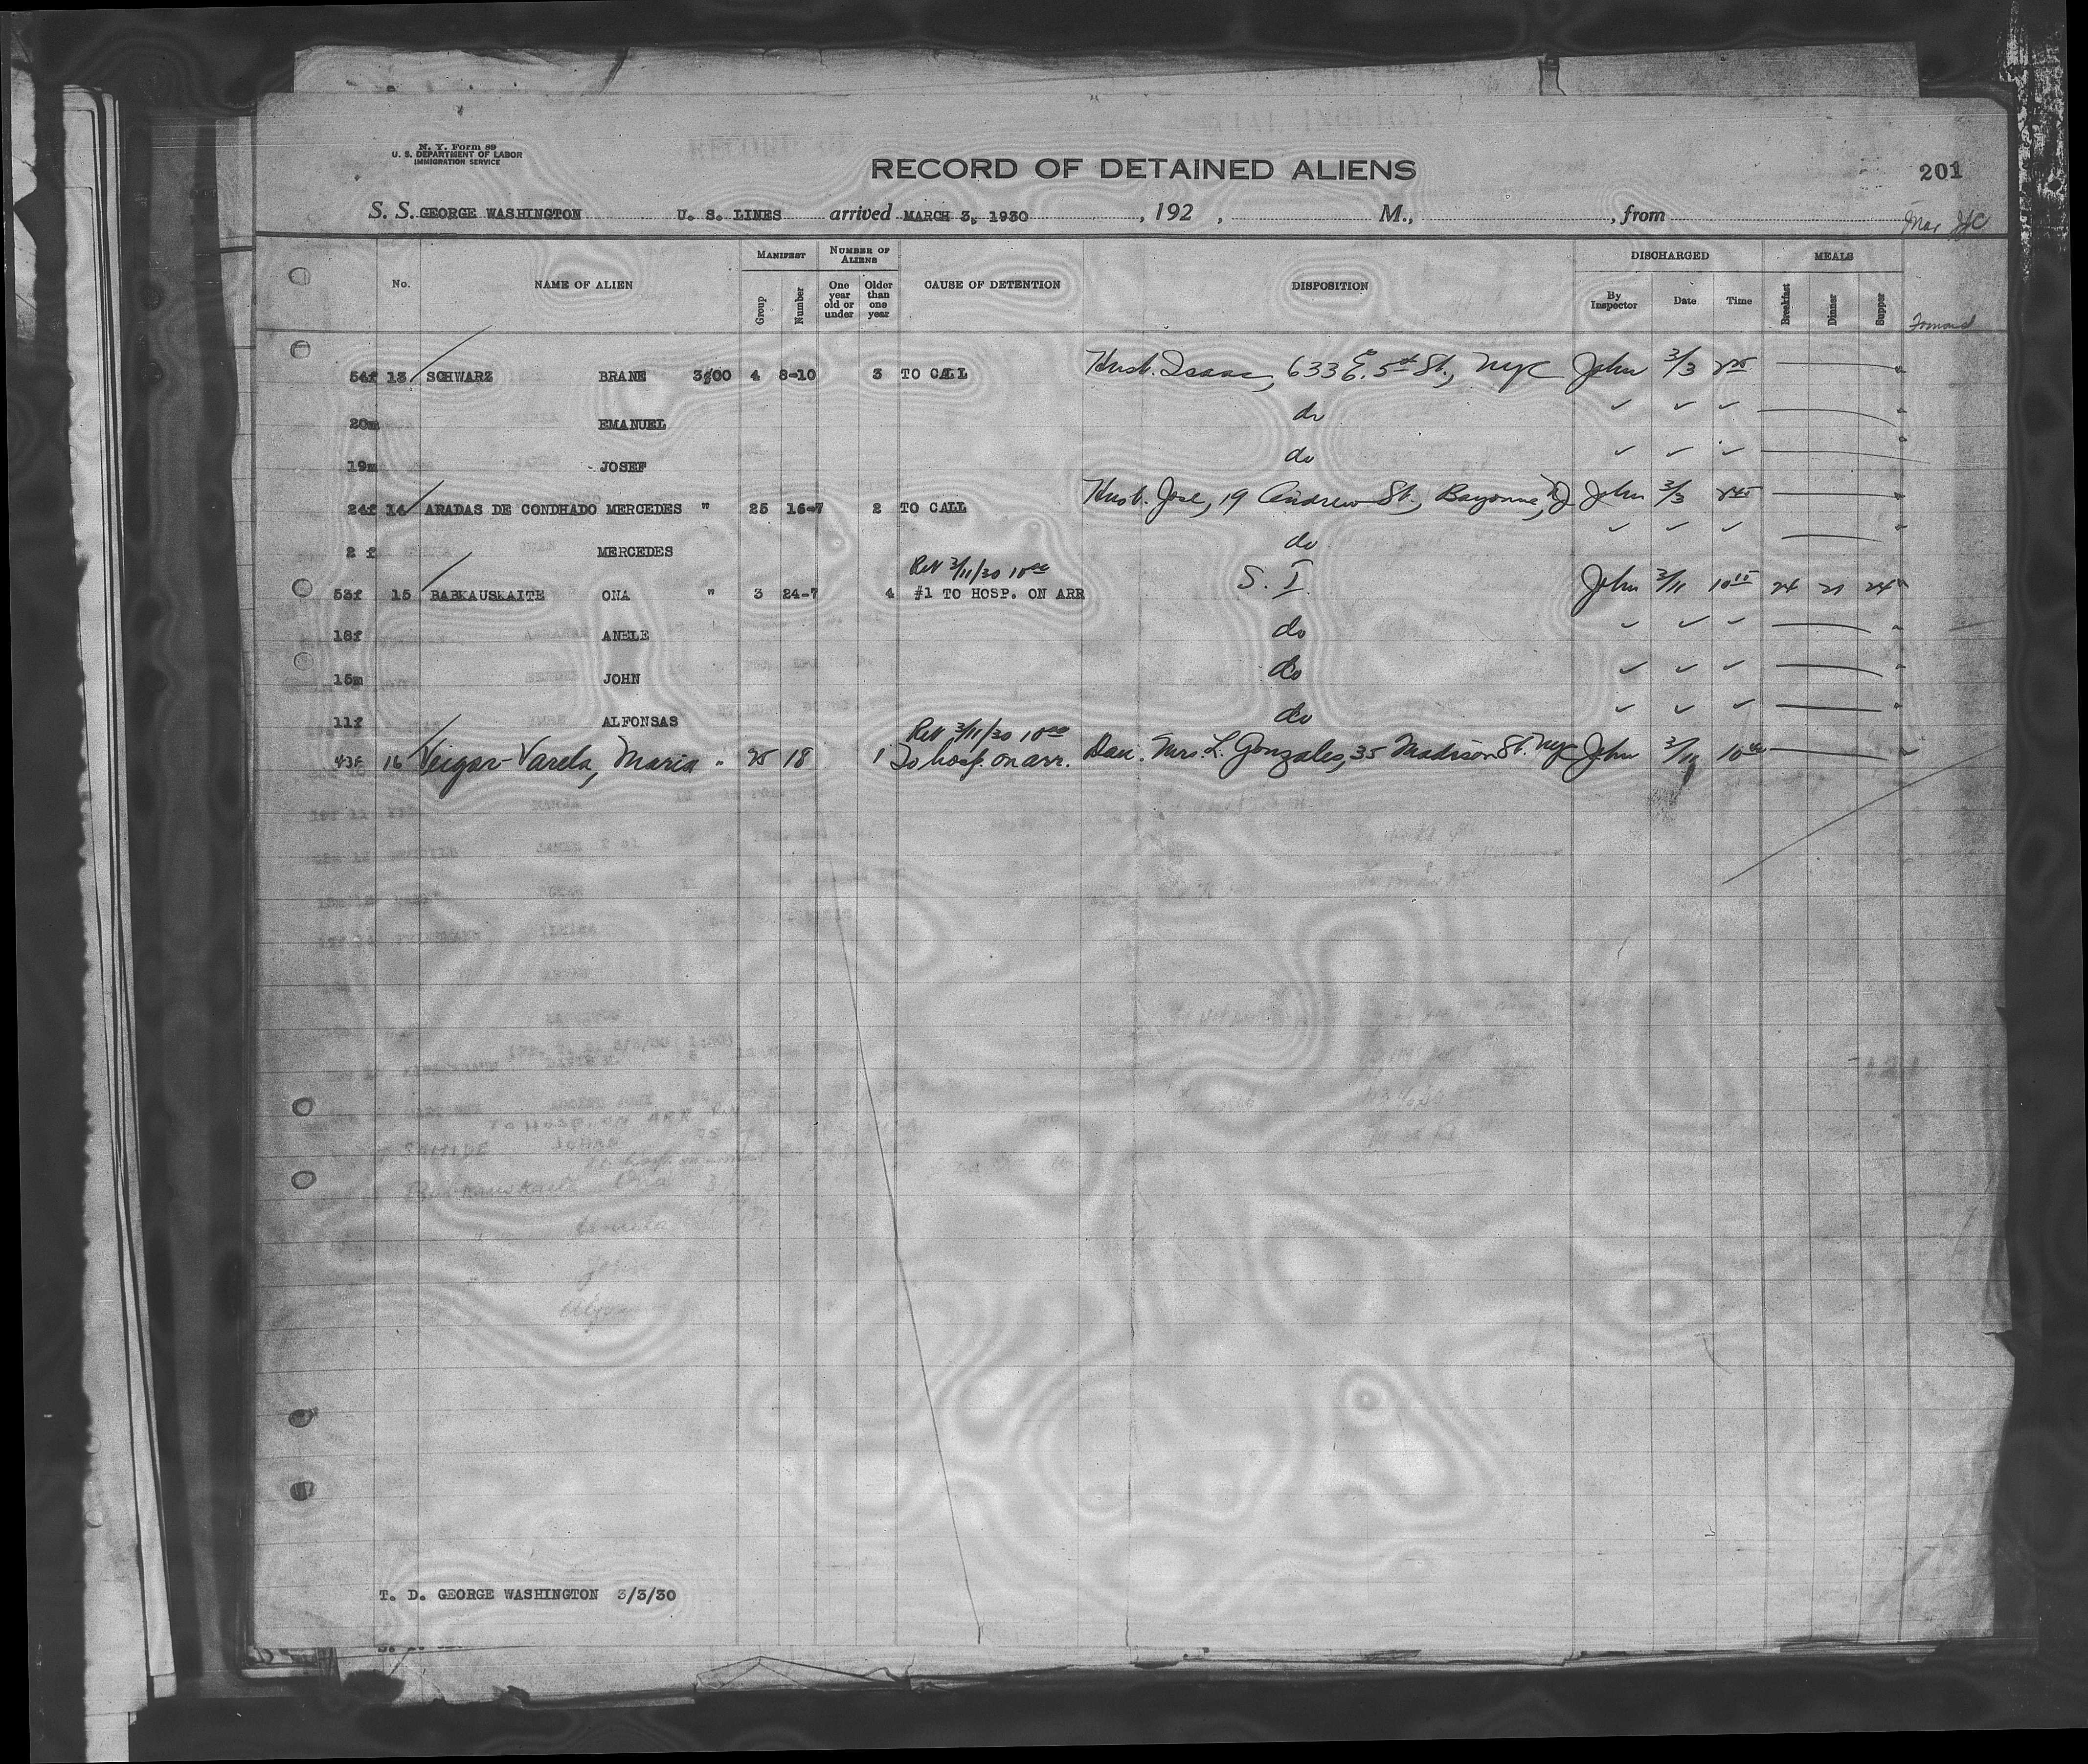 N. Y. Form 89
U. S. DEPARTMENT OF LABOR
IMMIGRATION SERVICE
RECORD OF DETAINED ALIENS
201
S. S. GEORGE WASHINGTON U. S. LINES arrived MARCH 3, 1930 , 192 , M., , from
No. NAME OF ALIEN MANIFEST Group Number NUMBER OF ALIENS One year old or under Older than one year CAUSE OF DETENTION DISPOSITION DISCHARGED By Inspector Date Time MEALS Breakfast Dinner Supper
54f 13 SCHWARZ BRANE 3:00 4 8-10 3 TO CALL Husb. Isaac, 633 E. 5th St., NYC John 3/3
20m EMANUEL do ✓ ✓ ✓
19m JOSEF do ✓ ✓ ✓
24f 14 ARADAS DE CONDHADO MERCEDES " 25 16-7 2 TO CALL Husb. Jose, 19 Andrew St., Bayonne, NJ John 3/3
2 f MERCEDES do ✓ ✓ ✓
Rel 3/11/30 10 00
53f 15 BABKAUSKAITE ONA " 3 24-7 4 #1 TO HOSP. ON ARR S. I. John 3/11 10 15 24 21 24
18f ANELE do ✓ ✓ ✓
15m JOHN do ✓ ✓ ✓
11f ALFONSAS do ✓ ✓ ✓
Rel 3/11/30 10 00
43f 16 Veigar Varela, Maria " 25 18 1 To hosp. on arr. Dau. Mrs. L. Gonzales, 35 Madison St. NYC John 3/11 10
T. D. GEORGE WASHINGTON 3/3/30